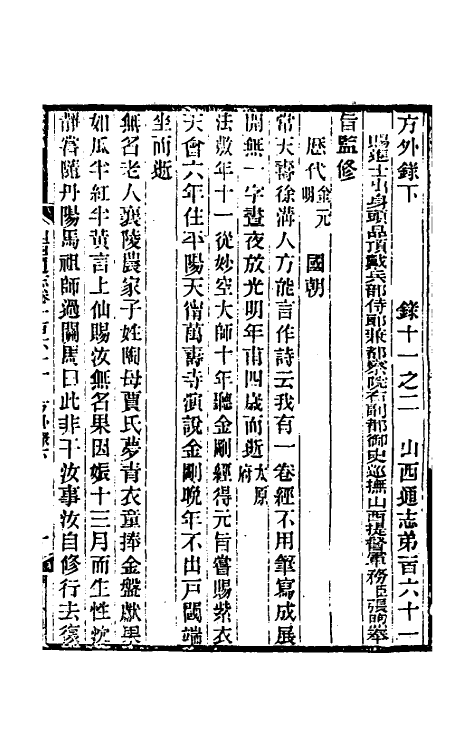 方外錄下　錄十一之二　山西通志弟一百六十一
賜進士出身頭品頂戴兵部侍郎兼都察院右副都御史巡撫山西提督軍務臣張煦奉
旨監修
歷代金元明　國朝
常天壽徐溝人方能言作詩云我有一卷經不用筆寫成展
開無一字晝夜放光明年甫四歲而逝太原府
法敷年十一從妙空大師十年聽金剛經得元旨嘗賜紫衣
天會六年住平陽天甯萬壽寺演說金剛晚年不出戶閾端
坐而逝
無名老人襄陵農家子姓陶母賈氏夢靑衣童捧金盤獻果
如瓜半紅半黃言上仙賜汝無名果因娠十三月而生性沈
靜嘗隨丹陽馬祖師過關馬曰此非干汝事汝自修行去復